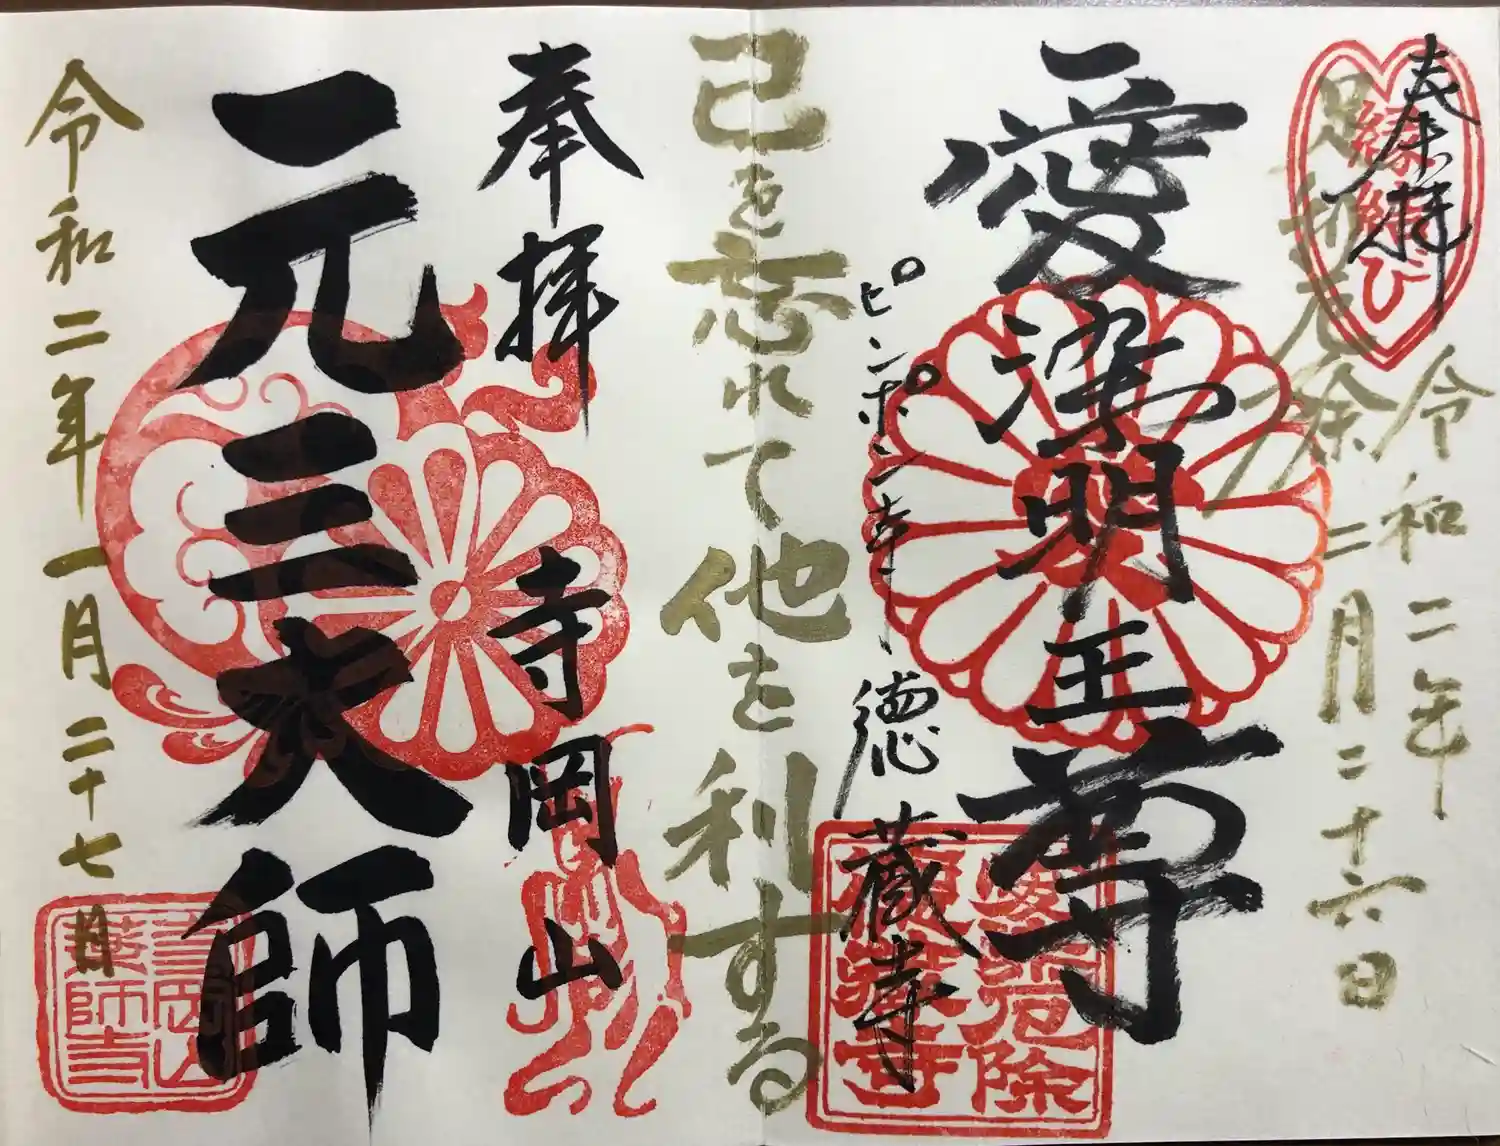 奉拝
縁結び
足利厄除
令和二年
二月二十六日
愛染明王尊
ピンポン寺
徳蔵寺
己を忘れて他を利する
奉拝
寺岡山
元三大師
令和二年一月二十七日